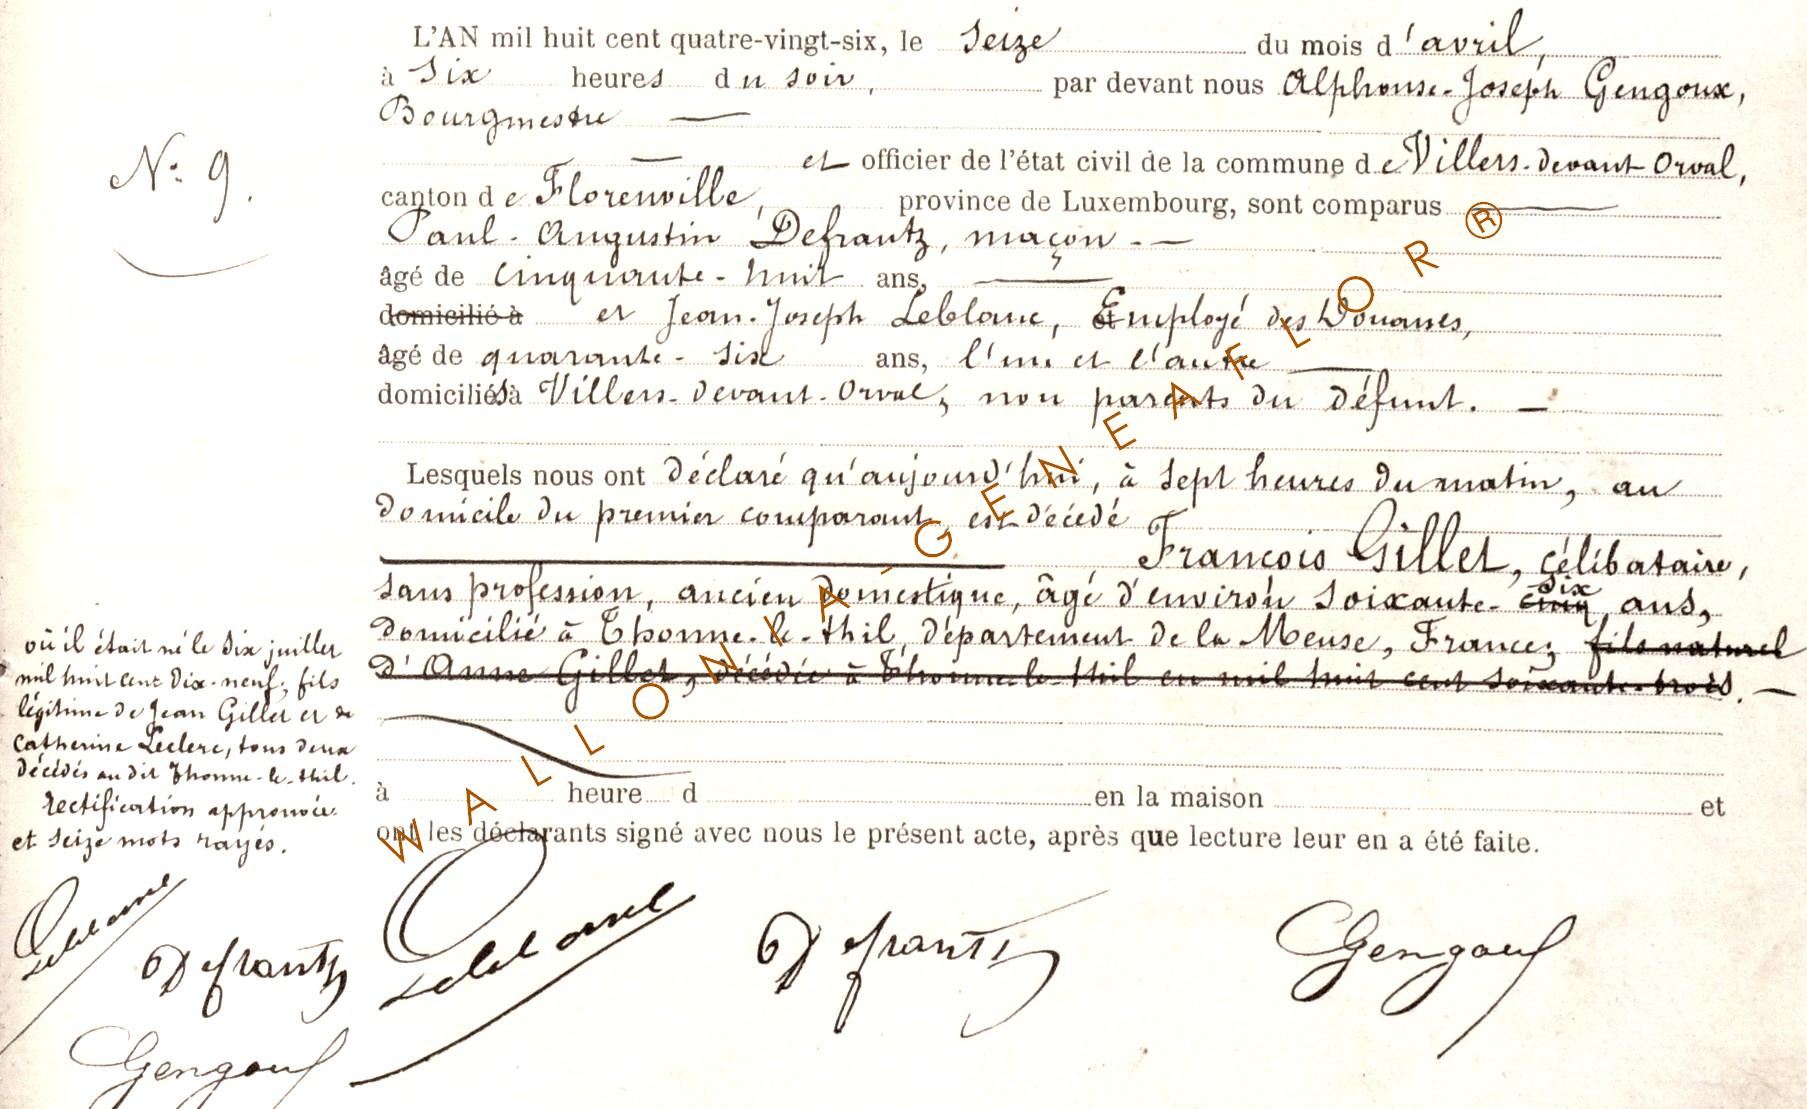 L'AN mil huit cent quatre-vingt-six, le seize du mois d'avril,
à six heures du soir, par devant nous Alphonse-Joseph Gengoux,
Bourgmestre
N° 9.
et officier de l'état civil de la commune de Villers-devant Orval,
canton de Florenville, province de Luxembourg, sont comparus
Paul-Augustin Defrantz, maçon
âgé de cinquante-huit ans,
domicilié à et Jean-Joseph Leblanc, Employé des Douanes,
âgé de quarante-six ans, l'un et l'autre
domiciliés à Villers-devant-Orval, non parents du défunt.
Lesquels nous ont déclaré qu'aujourd'hui, à sept heures du matin, au
domicile du premier comparant, est décédé
François Gillet, célibataire,
sans profession, ancien domestique, âgé d'environ soixante-cinq six ans,
domicilié à Thonne-le-thil, département de la Meuse, France; fils naturel
d'Anne Gillet, décédée à Thonne-le-thil en mil huit cent soixante-trois.
où il était né le dix juillet
mil huit cent dix-neuf, fils
légitime de Jean Gillet et de
Catherine Leclerc, tous deux
décédés au dit Thonne-le-thil.
rectification approuvée
et seize mots rayés.
à heure d en la maison et
ont les déclarants signé avec nous le présent acte, après que lecture leur en a été faite.
Leblanc Defrantz Gengoux
Leblanc
Defrantz
Gengoux
WALLONIA-GENEAFLOR®